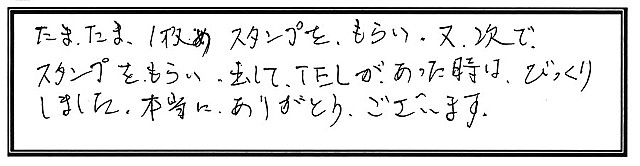 たまたま、1枚め スタンプを、もらい。又、次で、
スタンプを、もらい。出して、TELが、あった時は、びっくり
しました。本当に、ありがとう、ございます。